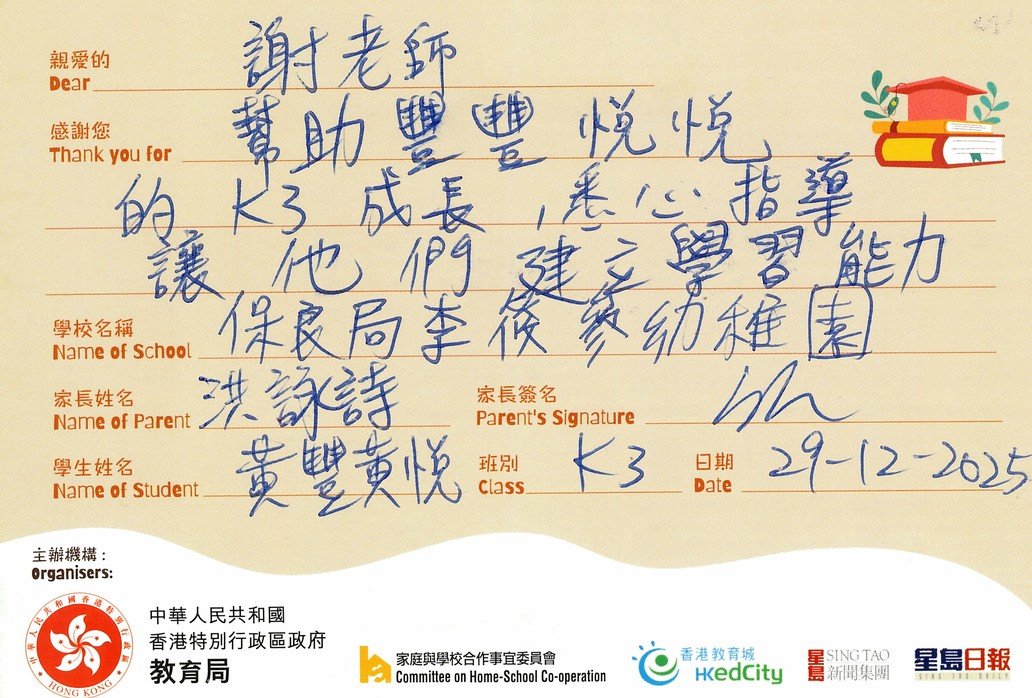 親愛的
Dear 謝老師
感謝您
Thank you for 幫助豐豐悅悅
的K3成長,悉心指導
讓他們建立學習能力
學校名稱
Name of School 保良局李筱參幼稚園
家長姓名 家長簽名
Name of Parent 洪詠詩 Parent's Signature
學生姓名 班別 日期
Name of Student 黃豐黃悅 Class K3 Date 29-12-2025
主辦機構:
Organisers:
中華人民共和國香港特別行政區
HONG KONG
中華人民共和國
香港特別行政區政府
教育局
家庭與學校合作事宜委員會
Committee on Home-School Co-operation
香港教育城
HKedCity
星島 SING TAO
新聞集團
星島日報
SING TAO DAILY